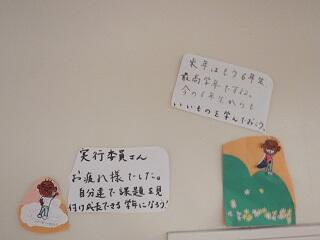 来年はもう6年生
最高学年ですね。
今の6年生からも
いいものを学んでおこう。
実行委員さん
お疲れ様でした。
自分達で課題を見
付け成長できる学年になろう!